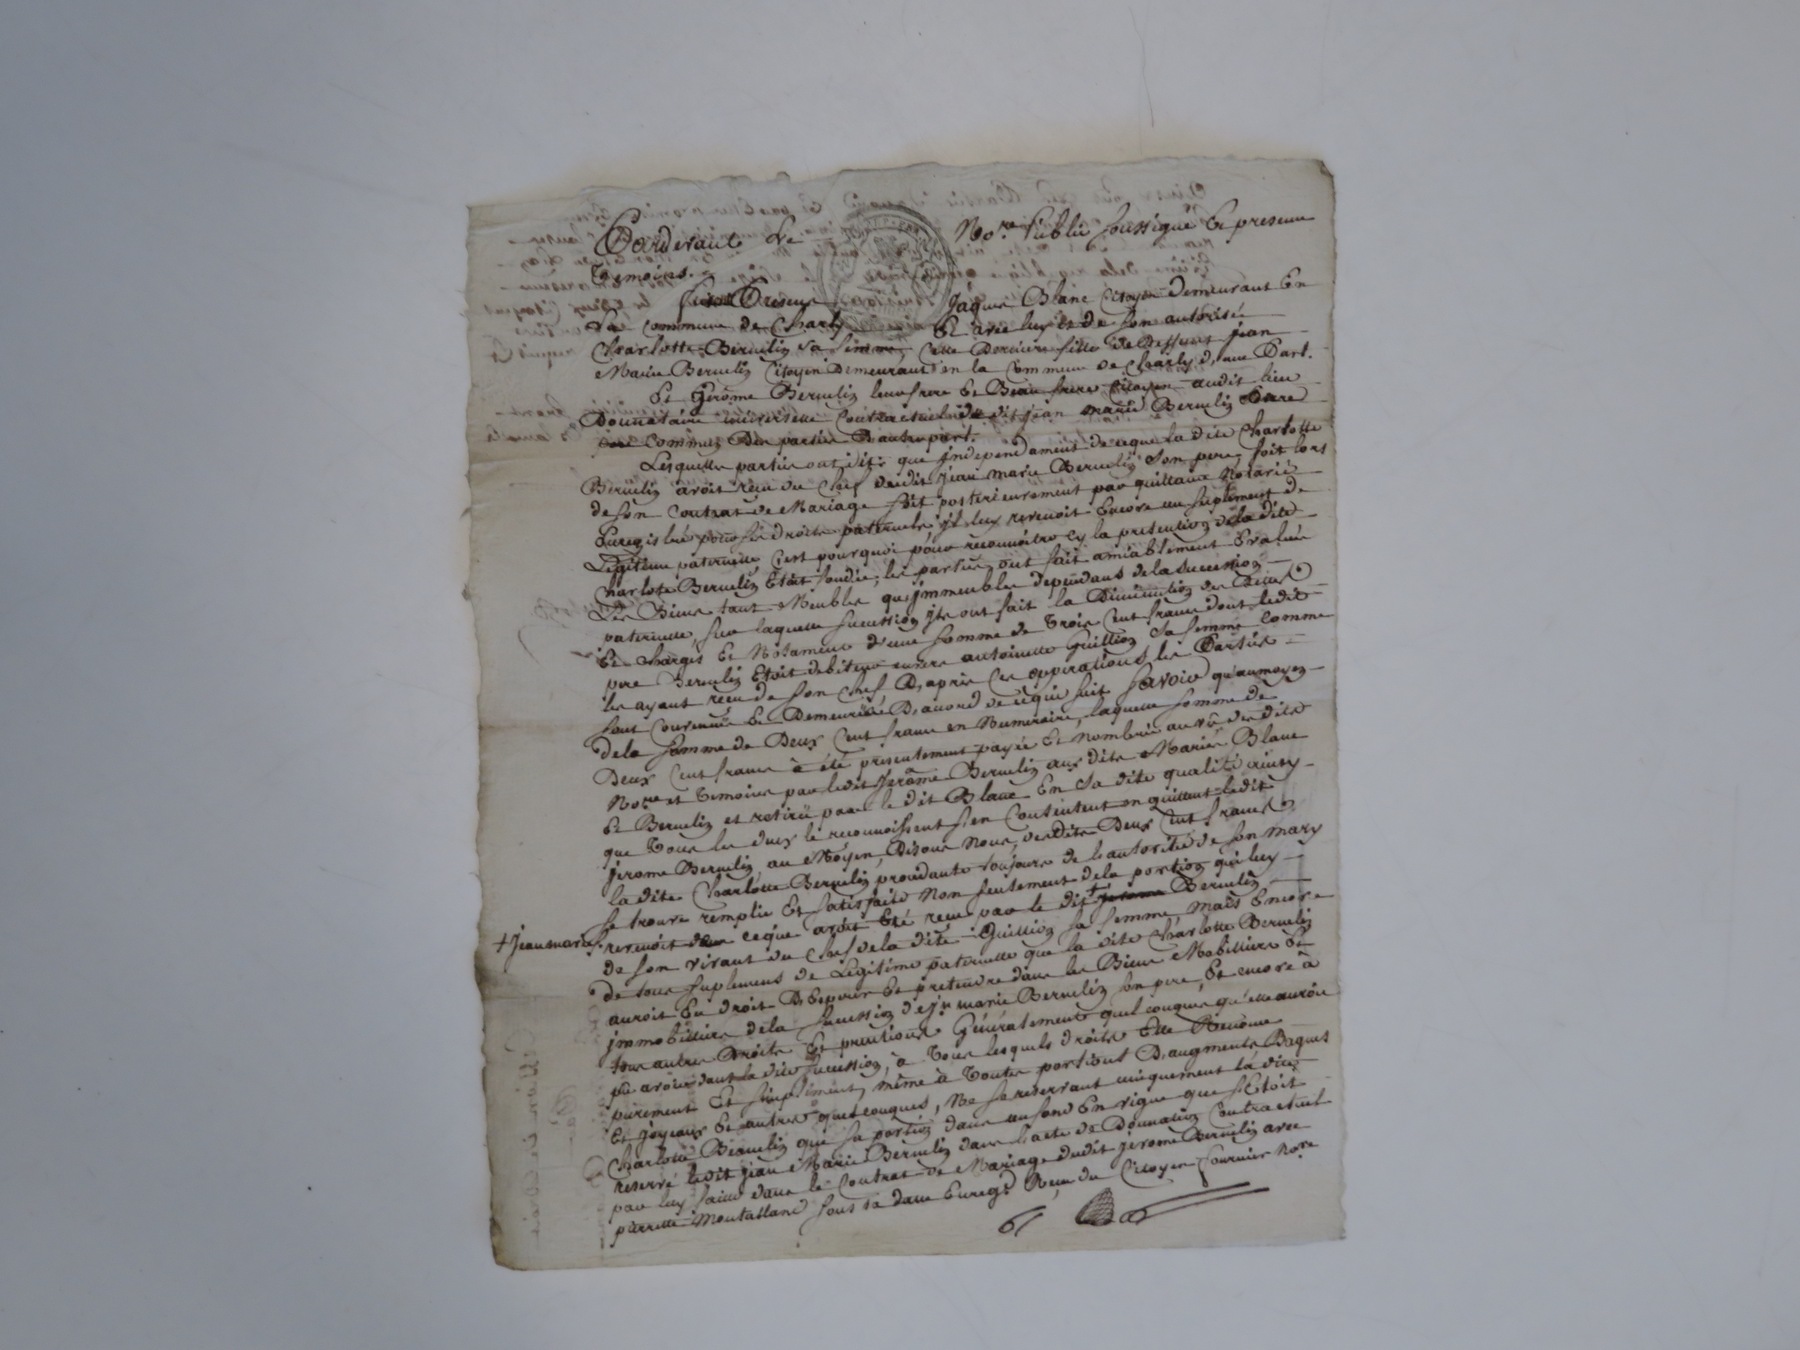 Pardevant Le No.re Public soussigné Et presence
Temoins.
furent Presens Jaques Blanc Citoyen demeurant En
La Commune de Charly Et avec luy et de son autorité
Charlotte Bernelin sa femme, Cette Derniere fille de Deffunt jean
Marie Bernelin Citoyen Demeurant en la Commune de Charly d'une Part.
Et Gérome Bernelin leur frere Et Beau frere Citoyen audit lieu
Donnataire universelle Contractuel du dit jean marie Bernelin Pere
Commun D'en partie D'autre part.
Lesquelles parties ont dit: que jndependament de ce que la dite Charlotte
Bernelin avoit reçu du Chef dudit jean marie Bernelin son pere, soit lors
de son Contrat de Mariage soit posterieurement par quittance Notarié
Enregistrés pour ses droits paternels jl luy revenoit Encore un suplement de
Légitime paternelle, C'est pourquoi pour reconnoitre sy la pretention de la dite
Charlotte Bernelin Etoit fondée, les parties ont fait amiablement Evaluer
Les Biens tant Meubles que jmmeubles dependans de la succession
paternelle, sur laquelle succession jls ont fait la Diminution des Dettes
Et Charges Et Notament d'une somme de Trois Cent francs dont ledit
pere Bernelin Etoit debiteur envers antoinette Guillion sa femme Comme
les ayant reçu de son Chef D'apres Ces opperations, les Parties
sont Convenues Et Demeurées D'accord de ce qui suit Savoir qu'au moyen
de la somme de Deux Cent francs en Numeraire, laquelle somme de
Deux Cent francs à été presentement payée Et nombrée au vû desdits
No.re et Temoins par ledit Jerôme Bernelin aux dits Mariés Blanc
Et Bernelin et retirée par le dit Blanc En sa dite qualité ainsy
que Tous les deux le reconnoissent s'en Contentent en quittent ledit
Jerome Bernelin, au Moyen, Disons Nous, desdits Deux Cent francs
la dite Charlotte Bernelin procedante toujours de l'autorité de son mary
se trouve remplie Et satisfaite Non seulement de la portion qui luy
+ jean marie revenoit dans ce que avoit Eté reçu par le dit + jerome Bernelin
de son vivant du Chef de la dite Guillion sa femme, mais Encore
de tous suplemens de Légitime paternelle que la dite Charlotte Bernelin
auroit En droit D'Esperer Et pretendre dans les Biens Mobilliers Et
jmmobilliers de la succession de jn marie Bernelin son pere, Et encore à
tous autres Droits Et pretentions Généralement quelconques qu'elle auroit
pû avoir dans la dite succession, à Tous lesquels droits Elle Renonce
purement Et simplement, même à Toutes portions D'augments Bagues
Et joyaux Et autres quelconques, Ne se reservant uniquement la dite
Charlotte Bernelin que sa portion dans un fond En vigne que s'Etoit
reservé ledit jean Marie Bernelin dans l'acte de Donnation Contractuel
par luy faite dans le Contrat de Mariage dudit jerome Bernelin avec
pierrette Montalland sous sa date Enregé. Reçu du Citoyen fournier No.re